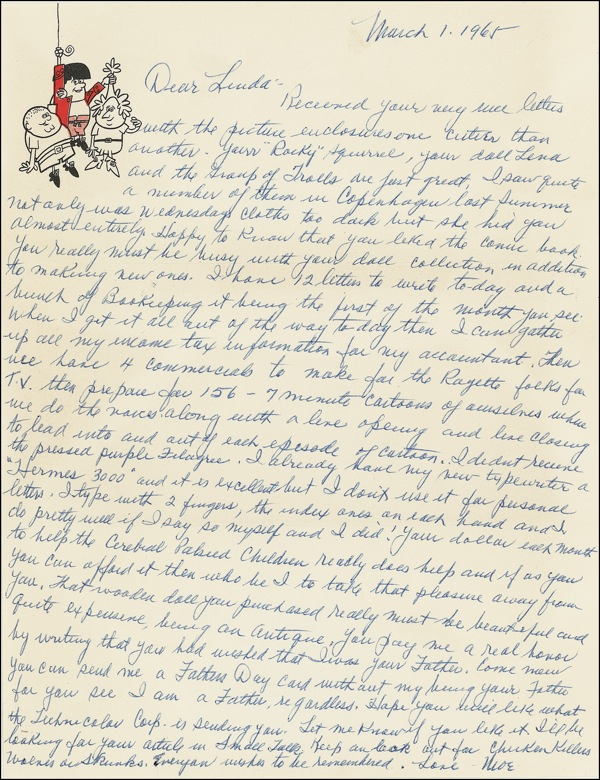 March 1. 1965
Dear Linda:-
Received your very nice letters
with the picture enclosures one cuter than
another. Your "Rocky" squirrel, your doll Lena
and the Group of Trolls are just great, I saw quite
a number of them in Copenhagen last Summer
not only was Wednesdays cloths too dark but she hid you
almost entirely. Happy to know that you liked the comic book.
You really must be busy with your doll collection in addition
to making new ones. I have 12 letters to write to-day and a
bunch of Bookeeping it being the first of the month you see.
When I get it all out of the way to-day then I can gather
up all my income tax information for my accountant. Then
we have 4 commercials to make for the Rayette folks for
T.V. then prepare for 156 - 7 minute cartoons of ourselves where
we do the voices along with a live opening and live closing
to lead into and out of each episode of cartoon. I didnt receive
the pressed purple Filagree. I already have my new typewriter a
"Hermes 3000" and it is excellent but I don't use it for personal
letters. I type with 2 fingers, the index ones on each hand and I
do pretty well if I say so myself and I did! Your dollar each month
to help the Cerebral Palsied Children really does help and if as you
you can afford it then who be I to take that pleasure away from
you. That wooden doll you purchased really must be beautiful and
quite expensive, being an Antique. You pay me a real honor
by writing that you had wished that I was your Father. Come now
you can send me a Fathers Day Card without my being your Father
for you see I am a Father, regardless. Hope you will like what
the Technicolor Corp. is sending you. Let me know if you like it. I'll be
looking for your article in Small Talk. Keep an look out for Chicken Killers
Wolves or Skunks. Everyone wishes to be remembered. - Love - Moe